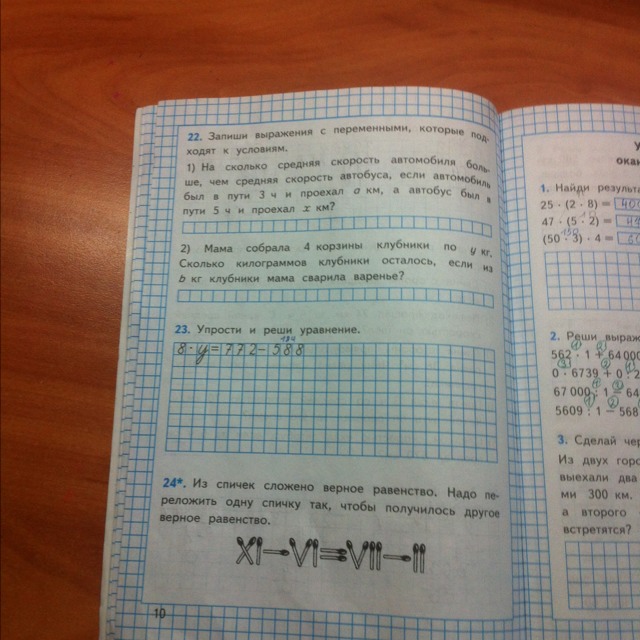 22. Запиши выражения с переменными, которые под-
ходят к условиям.
1) На сколько средняя скорость автомобиля боль-
ше, чем средняя скорость автобуса, если автомобиль
был в пути 3 ч и проехал a км, а автобус был в
пути 5 ч и проехал x км?
2) Мама собрала 4 корзины клубники по y кг.
Сколько килограммов клубники осталось, если из
b кг клубники мама сварила варенье?
23. Упрости и реши уравнение.
184
8 · y = 772 - 588
24*. Из спичек сложено верное равенство. Надо пе-
реложить одну спичку так, чтобы получилось другое
верное равенство.
XI-VI=VII-II
10
1. Найди
25 · (2 · 8) =
47 · (5 · 2) =
150
(50 · 3) · 4 =
2.
562 · 1 +
0 : 6739 +
67 000
5609 : 1 - 568
3. Сделай
Из двух
выехали два
ми 300 км.
а второго
встретятся?